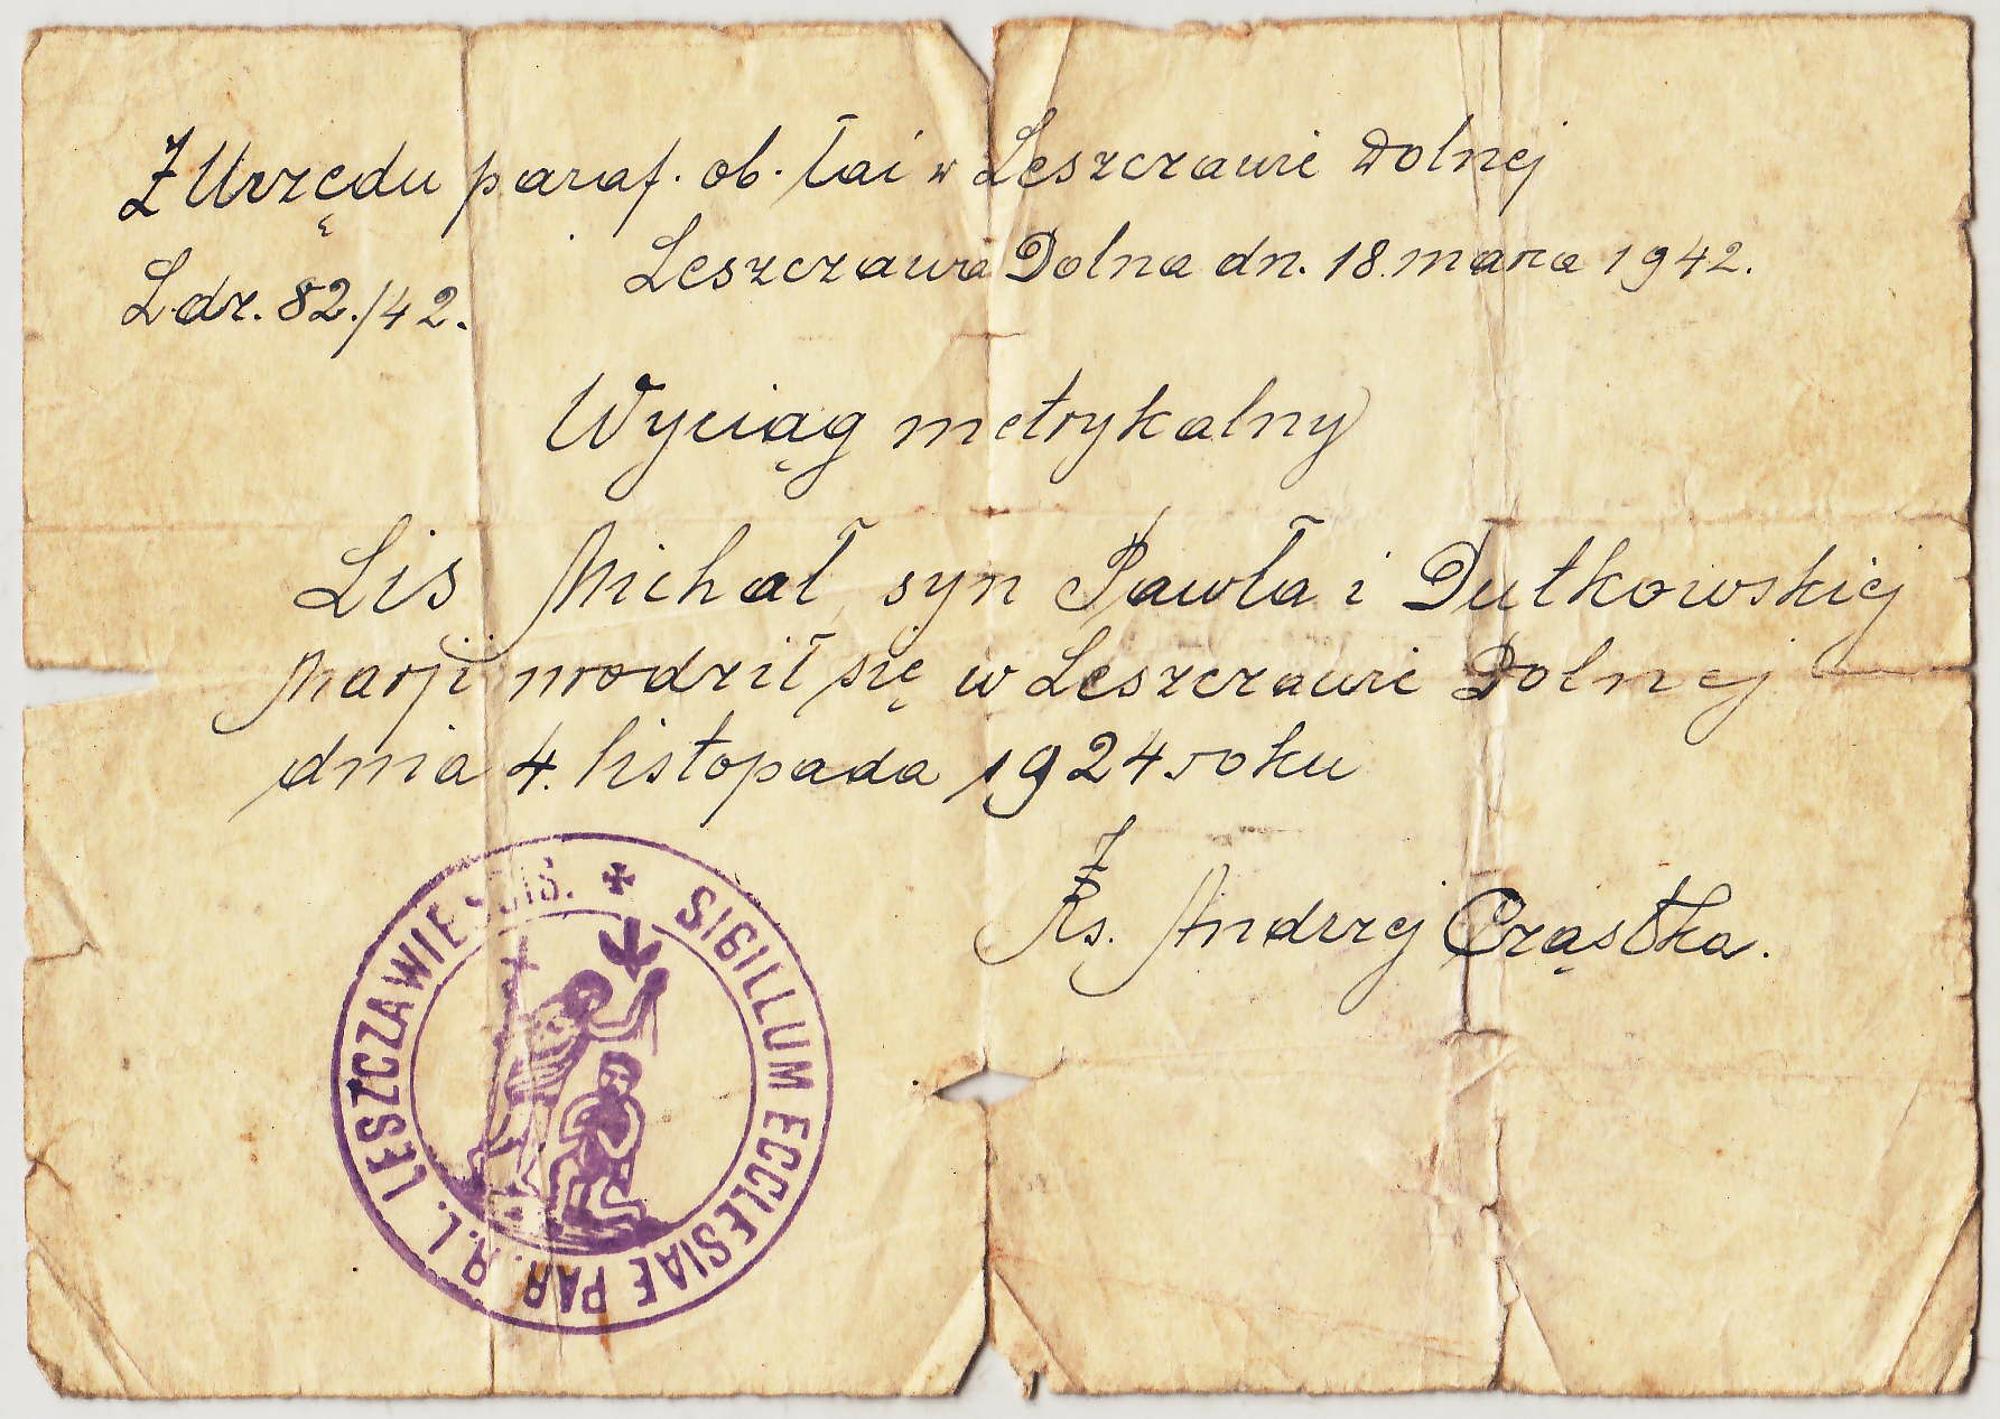 Z Urzędu paraf. ob. łać w Leszczawie Dolnej
Leszczawa Dolna dn. 18. marca 1942.
L.dz. 82./42.
Wyciąg metrykalny
Lis Michał syn Pawła i Dutkowskiej
Marji urodził się w Leszczawie Dolnej
dnia 4. listopada 1924 roku
Ks. Andrzej Cząstka.
✠ SIGILLUM ECCLESIAE PAR. R. L. LESZCZAWIENSIS.